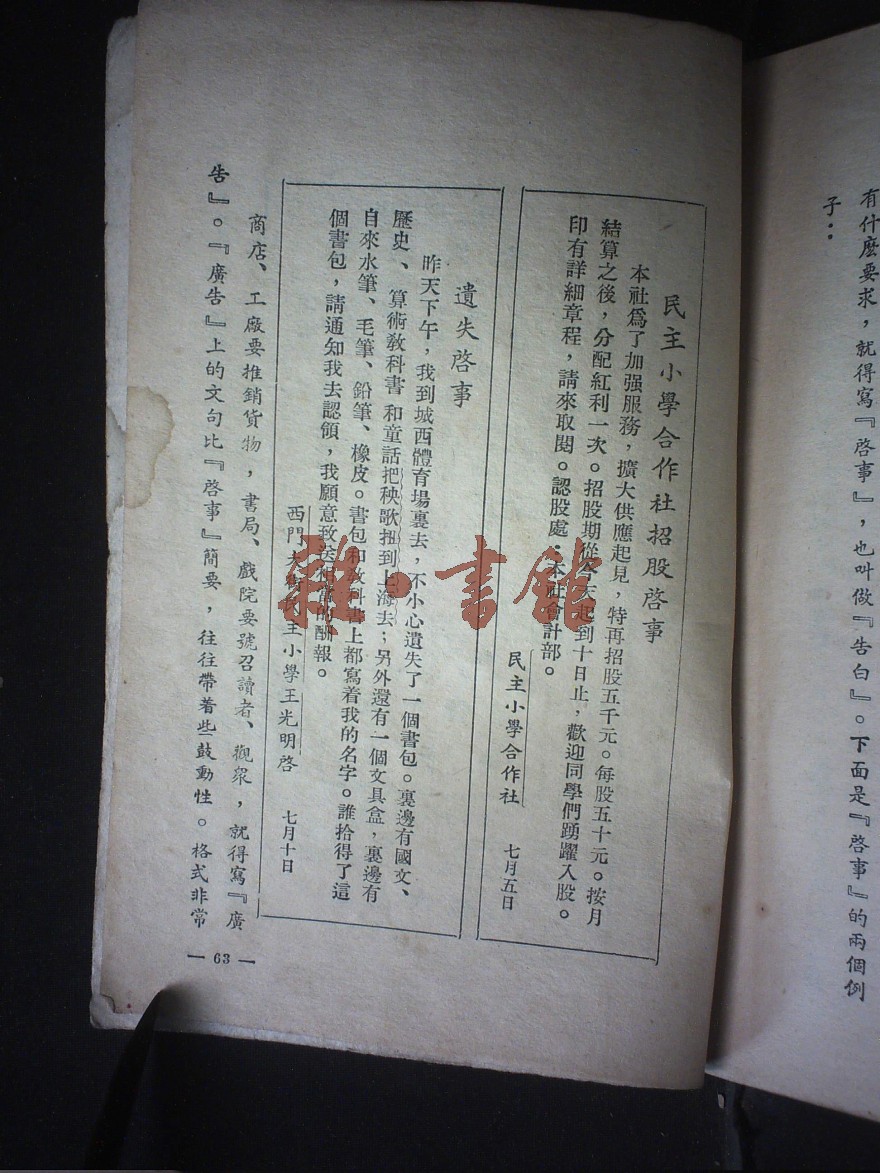 有什麽要求，就得寫『啓事』，也叫做『告白』。下面是『啓事』的兩個例
子：
民主小學合作社招股啓事
本社爲了加强服務，擴大供應起見，特再招股五千元。每股五十元。按月
結算之後，分配紅利一次。招股期從今天起到十日止，歡迎同學們踴躍入股。
印有詳細章程，請來取閱。認股處：本社會計部。
民主小學合作社　七月五日
遺失啓事
昨天下午，我到城西體育場裏去，不小心遺失了一個書包。裏邊有國文、
歷史、算術敎科書 和童話把秧歌扭到上海去；另外還有一個文具盒，裏邊有
自來水筆、毛筆、鉛筆、橡皮。書包和敎科書上都寫着我的名字。誰拾得了這
個書包，請通知我去認領，我願意致送相當的酬報。
西門大街民主小學王光明啓　七月十日
商店、工廠要推銷貨物，書局、戲院要號召讀者、觀衆，就得寫『廣
告』。『廣告』上的文句比『啓事』簡要，往往帶着些鼓動性。格式非常
— 63 —